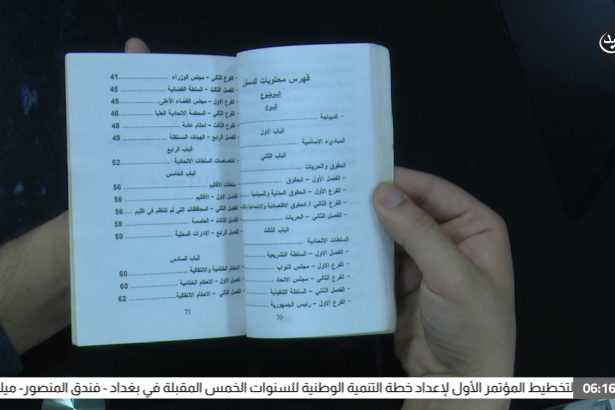 فهرس محتويات الدستور
الموضوع
المواد
- الديباجة
الباب الاول
المباديء الاساسية
الباب الثاني
الحقوق والحريات
- الفصل الأول – الحقوق
- الفرع الأول – الحقوق المدنية والسياسية
- الفرع الثاني – الحقوق الاقتصادية والاجتماعية
- الفصل الثاني – الحريات
الباب الثالث
السلطات الاتحادية
- الفصل الاول – السلطة التشريعية
- الفرع الاول – مجلس النواب
- الفرع الثاني – مجلس الاتحاد
- الفصل الثاني – السلطة التنفيذية
- الفرع الاول – رئيس الجمهورية
70
- الفرع الثاني – مجلس الوزراء 41
- الفصل الثالث – السلطة القضائية 45
- الفرع الاول – مجلس القضاء الأعلى 45
- الفرع الثاني – المحكمة الاتحادية العليا 46
- الفرع الثالث – احكام عامة 48
- الفصل الرابع – الهيئات المستقلة 49
الباب الرابع
اختصاصات السلطات الاتحادية 52
الباب الخامس
سلطات الاقاليم
- الفصل الاول – الاقاليم 56
- الفصل الثاني – المحافظات التي لم تنتظم في اقليم 56
- الفصل الثالث – العاصمة 59
- الفصل الرابع – الادارات المحلية 59
الباب السادس
الاحكام الختامية والانتقالية
- الفصل الاول – الاحكام الختامية 60
- الفصل الثاني – الاحكام الانتقالية 62
71
06:16
للتخطيط المؤتمر الأول لإعداد خطة التنمية الوطنية للسنوات الخمس المقبلة في بغداد - فندق المنصور-